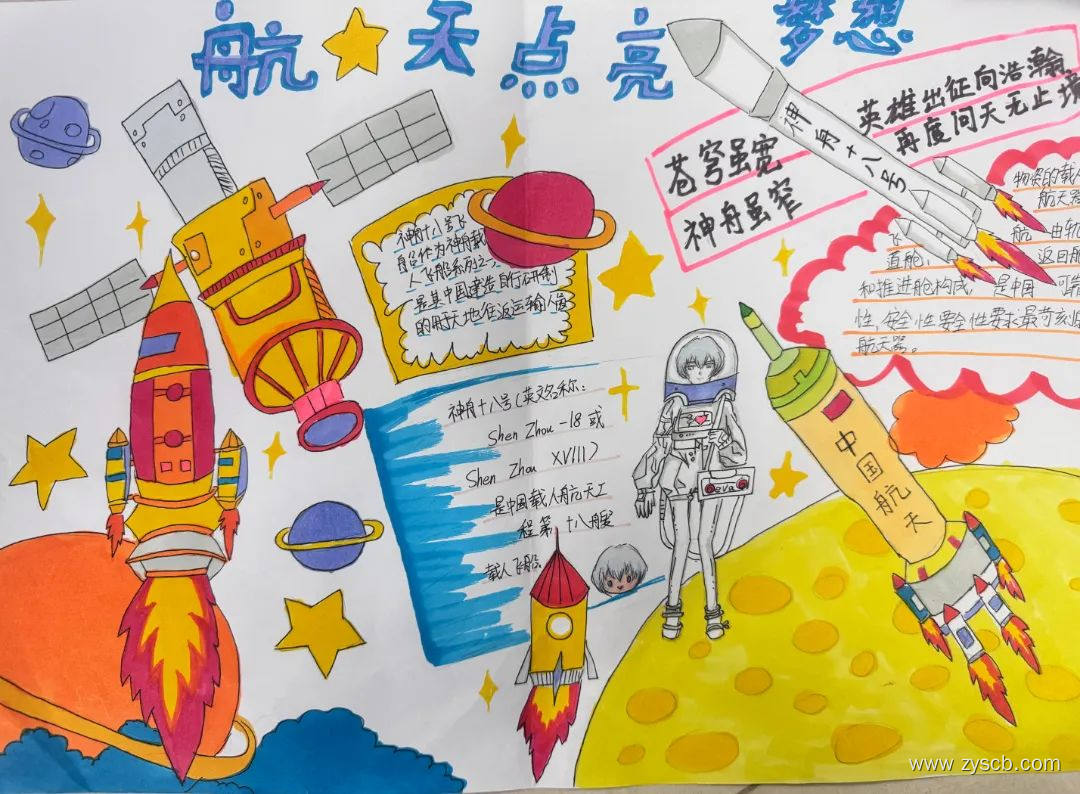 航天点亮梦想
苍穹虽宽
神舟虽窄
英雄出征向浩瀚
再度问天无止境
神舟十八号
神舟十八号飞
船作为神舟载
人飞船系列之一
是其中国建造自行研制
的用于天地往返运输人员
神舟十八号(英文名称:
Shen Zhou-18 或
Shen Zhou XVIII)
是中国载人航天工
程第十八艘
载人飞船
物资的载人
航天器
飞
航 由轨
直舱, 返回舱
和推进舱构成, 是中国 可靠
性,安全性要全性要求最苛刻
航天器。
中国航天
eva
www.zyscb.com